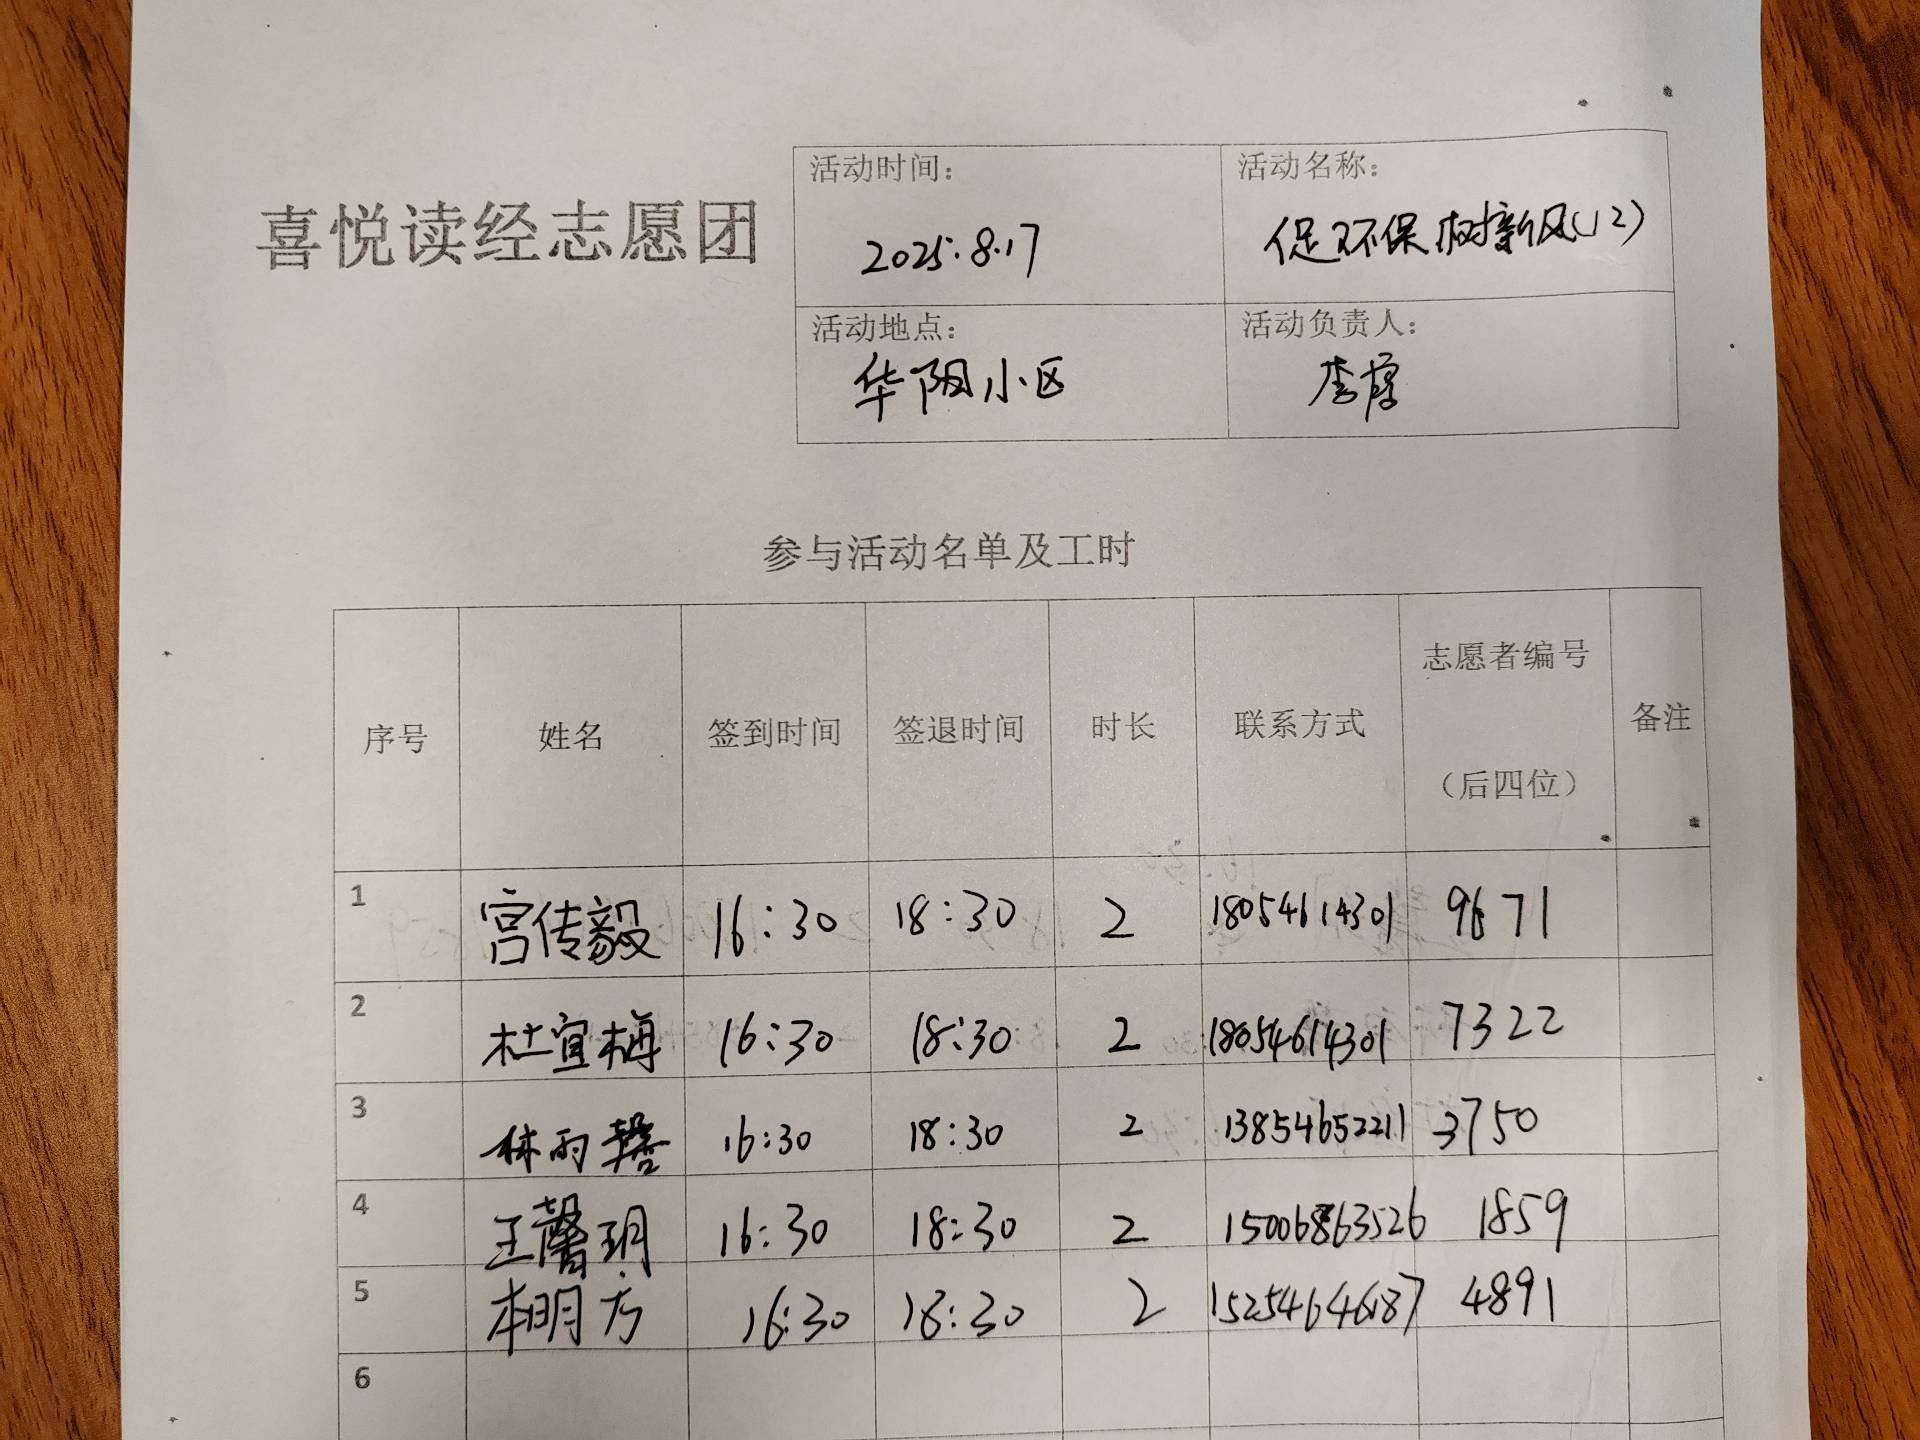 喜悦读经志愿团
活动时间：
2025.8.17
活动名称：
促环保 树新风(12)
活动地点：
华阳小区
活动负责人：
李
参与活动名单及工时
序号 姓名 签到时间 签退时间 时长 联系方式 志愿者编号（后四位） 备注
1 宫传毅 16:30 18:30 2 18054614301 9671
2 杜宜梅 16:30 18:30 2 18054614301 7322
3 林雨馨 16:30 18:30 2 13854652211 3750
4 王馨玥 16:30 18:30 2 15006863526 1859
5 明方 16:30 18:30 2 15254646187 4891
6